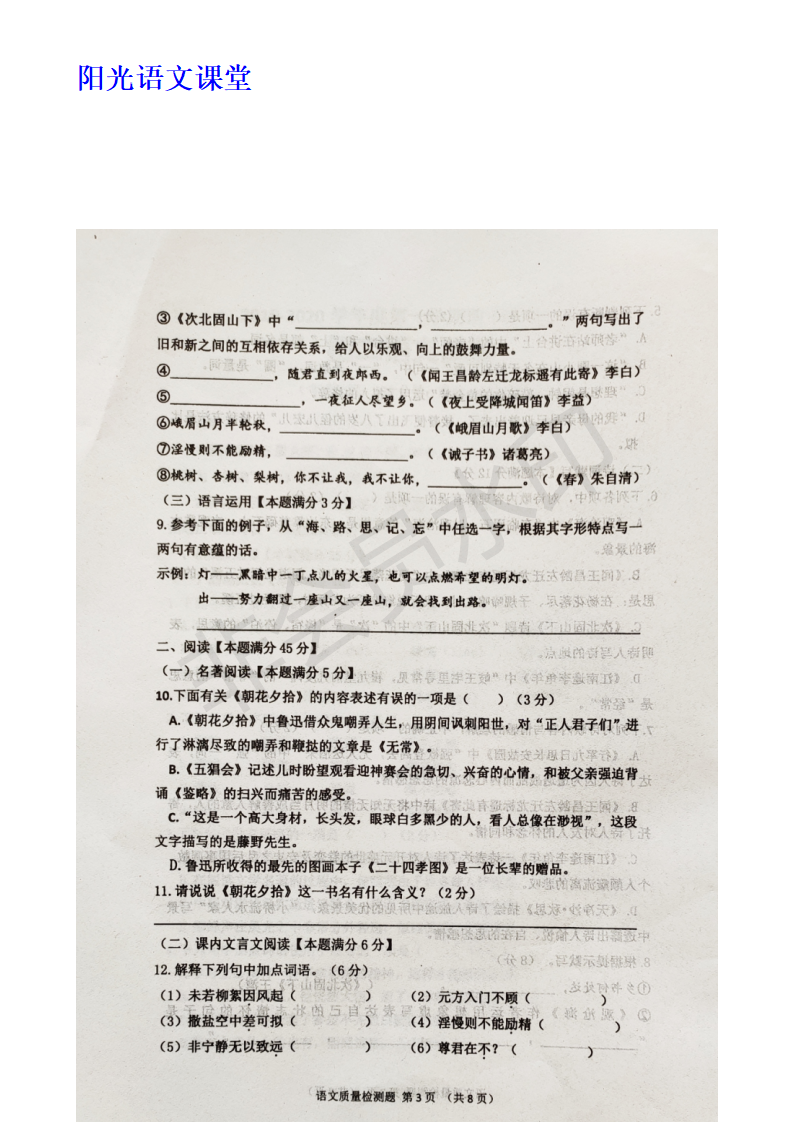 阳光语文课堂
③《次北固山下》中“____________，____________。”两句写出了
旧和新之间的互相依存关系，给人以乐观、向上的鼓舞力量。
④____________，随君直到夜郎西。（《闻王昌龄左迁龙标遥有此寄》李白）
⑤____________，一夜征人尽望乡。（《夜上受降城闻笛》李益）
⑥峨眉山月半轮秋，____________。（《峨眉山月歌》李白）
⑦淫慢则不能励精，____________。（《诫子书》诸葛亮）
⑧桃树、杏树、梨树，你不让我，我不让你，____________。（《春》朱自清）
（三）语言运用【本题满分3分】
9.参考下面的例子，从“海、路、思、记、忘”中任选一字，根据其字形特点写一
两句有意蕴的话。
示例：灯——黑暗中一丁点儿的火星，也可以点燃希望的明灯。
出——努力翻过一座山又一座山，就会找到出路。
二、阅读【本题满分45分】
（一）名著阅读【本题满分5分】
10.下面有关《朝花夕拾》的内容表述有误的一项是（ ）（3分）
A.《朝花夕拾》中鲁迅借众鬼嘲弄人生，用阴间讽刺阳世，对“正人君子们”进
行了淋漓尽致的嘲弄和鞭挞的文章是《无常》。
B.《五猖会》记述儿时盼望观看迎神赛会的急切、兴奋的心情，和被父亲强迫背
诵《鉴略》的扫兴而痛苦的感受。
C.“这是一个高大身材，长头发，眼球白多黑少的人，看人总像在渺视”，这段
文字描写的是藤野先生。
D.鲁迅所收得的最先的图画本子《二十四孝图》是一位长辈的赠品。
11.请说说《朝花夕拾》这一书名有什么含义？（2分）
（二）课内文言文阅读【本题满分6分】
12.解释下列句中加点词语。（6分）
（1）未若柳絮因风起（ ） （2）元方入门不顾（ ）
（3）撒盐空中差可拟（ ） （4）淫慢则不能励精（ ）
（5）非宁静无以致远（ ） （6）尊君在不？（ ）
语文质量检测题 第3页 （共8页）
非会员水印